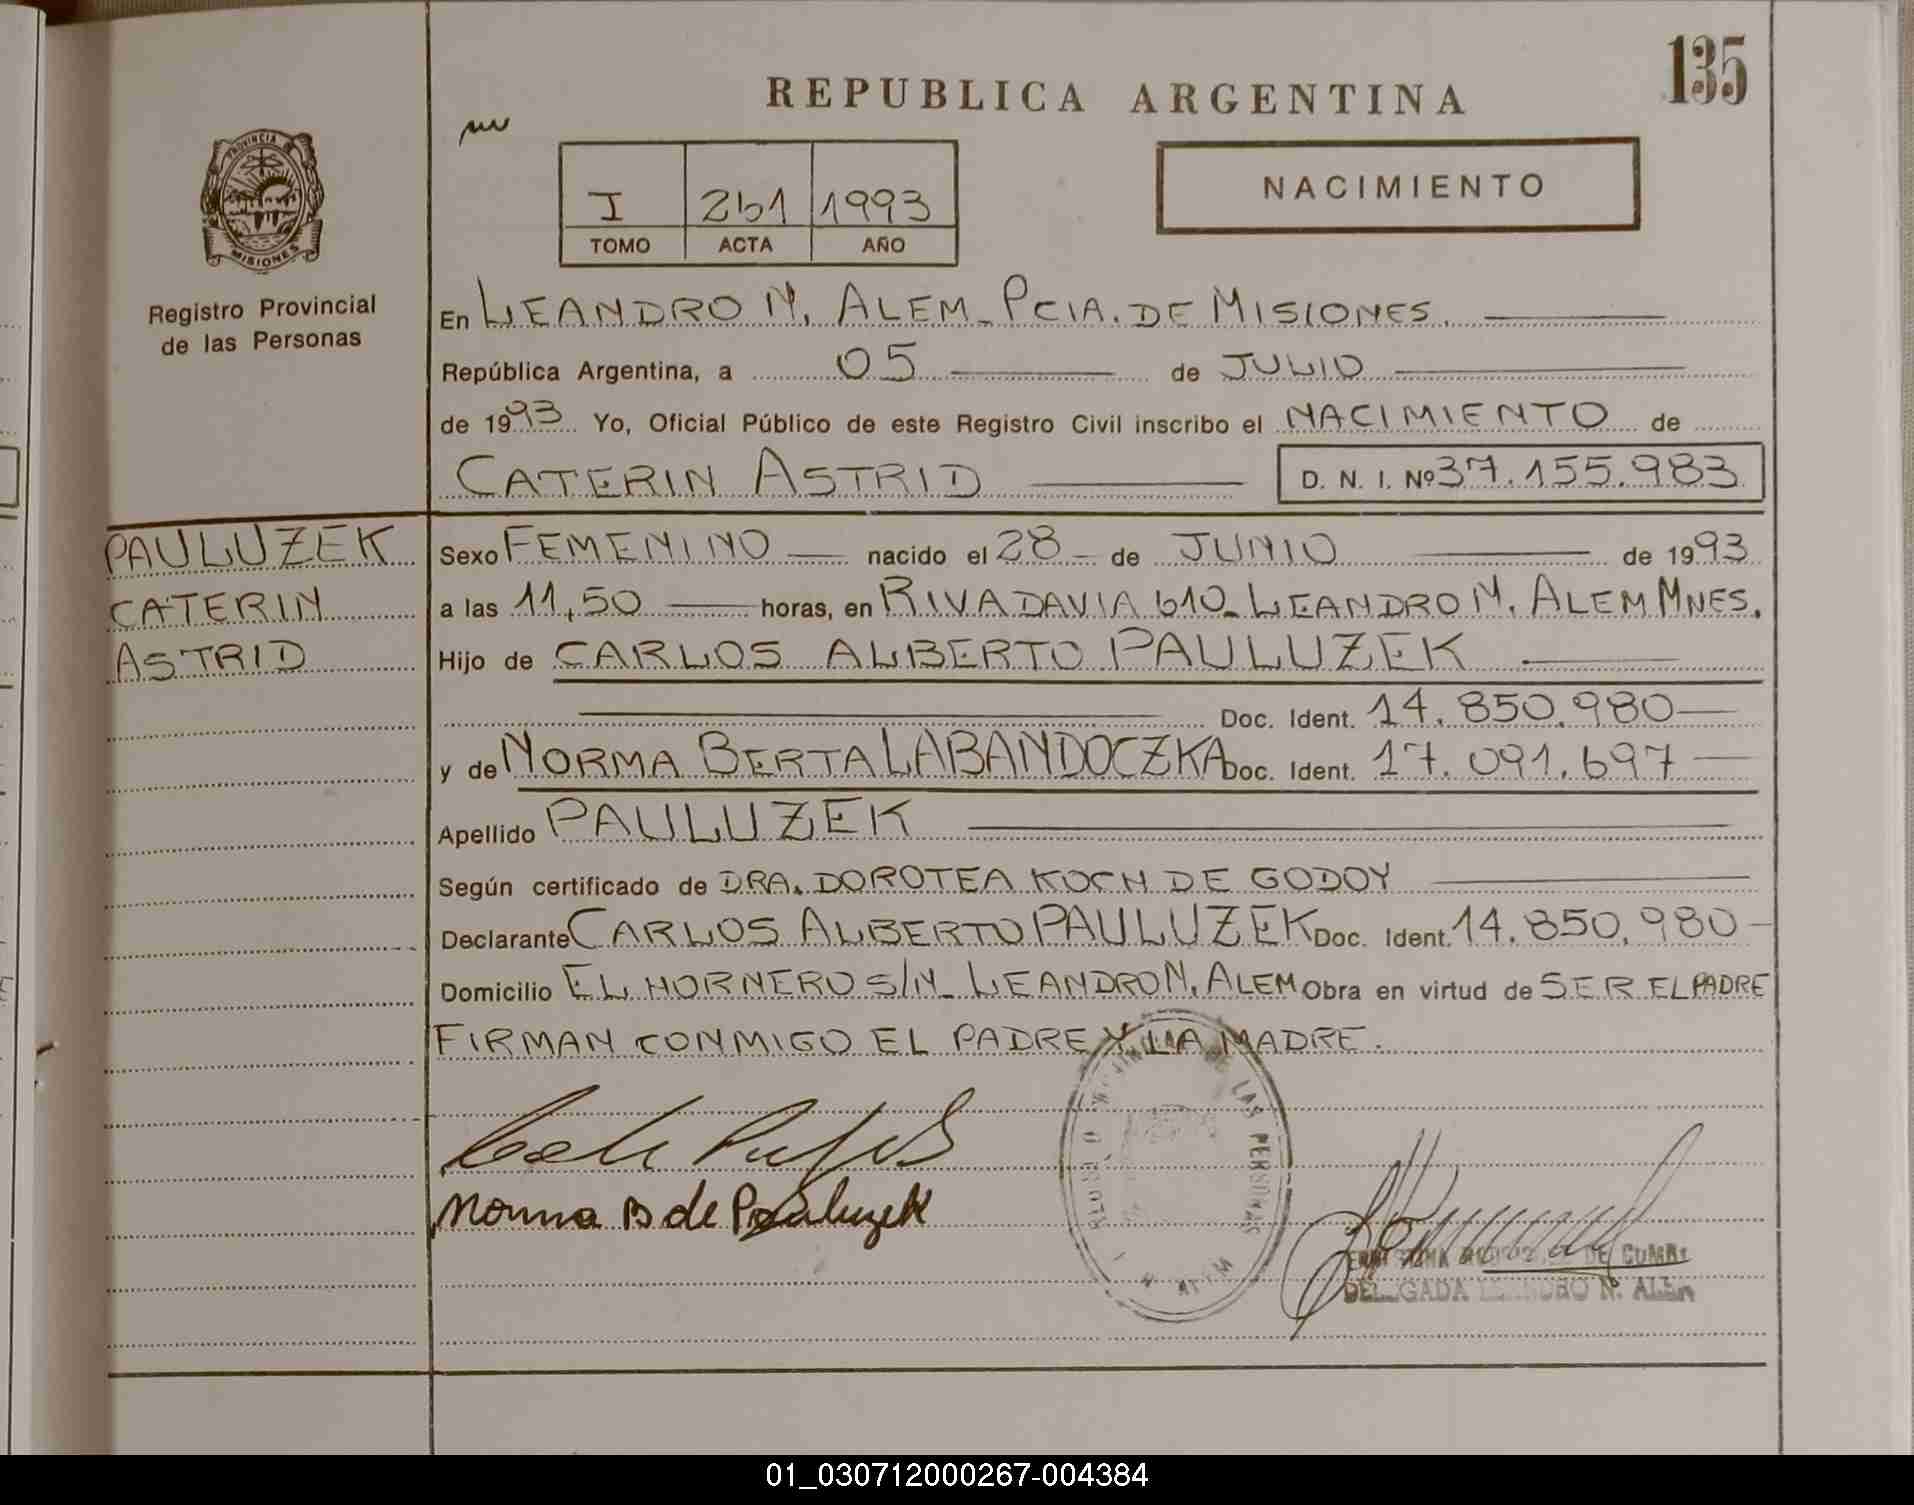 135
REPUBLICA ARGENTINA
PROVINCIA DE MISIONES
Registro Provincial
de las Personas
I 261 1993
TOMO ACTA AÑO
NACIMIENTO
En LEANDRO N. ALEM_PCIA. DE MISIONES.
República Argentina, a 05 de JULIO
de 1993 Yo, Oficial Público de este Registro Civil inscribo el NACIMIENTO de
CATERIN ASTRID D. N. I. Nº 37.155.983
PAULUZEK
CATERIN
ASTRID
Sexo FEMENINO nacido el 28 de JUNIO de 1993
a las 11,50 horas, en RIVADAVIA 610_LEANDRO N. ALEM MNES.
Hijo de CARLOS ALBERTO PAULUZEK
Doc. Ident. 14.850.980
y de NORMA BERTA LABANDOCZKA Doc. Ident. 17.091.697
Apellido PAULUZEK
Según certificado de DRA. DOROTEA KOCH DE GODOY
Declarante CARLOS ALBERTO PAULUZEK Doc. Ident. 14.850.980
Domicilio EL HORNERO S/N_LEANDRO N. ALEM Obra en virtud de SER EL PADRE
FIRMAN CONMIGO EL PADRE Y LA MADRE.
Norma B de Pauluzek
LAS PERSONAS
DELEGADA LEANDRO N. ALEM
01_030712000267-004384